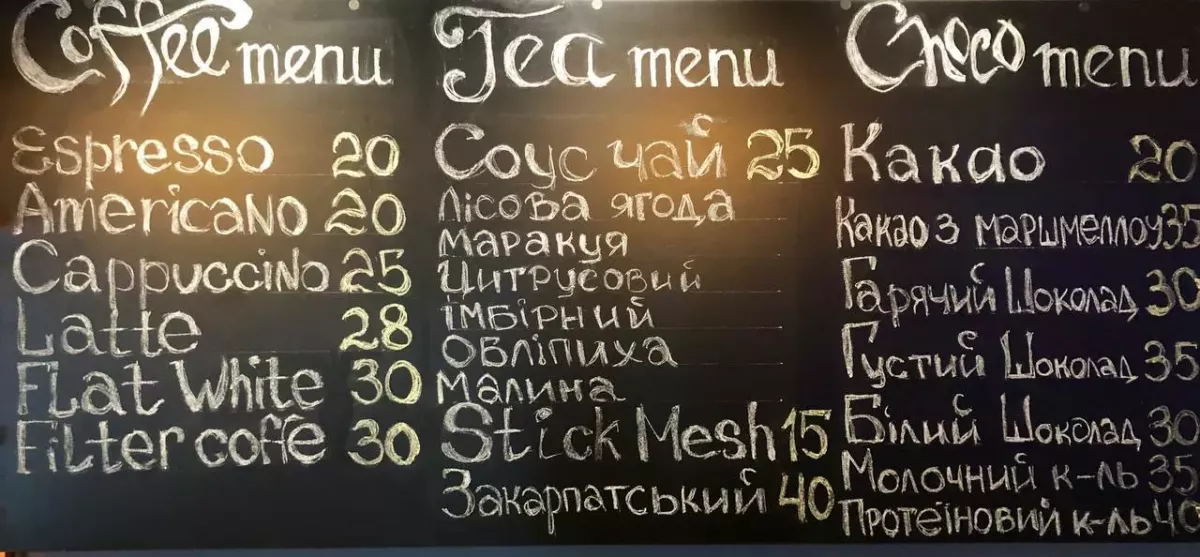 Coffee menu
Espresso 20
Americano 20
Cappuccino 25
Latte 28
Flat White 30
Filter coffe 30
Tea menu
Соус чай 25
Лісова ягода
Маракуя
Цитрусовий
імбірний
Обліпиха
Малина
Stick Mesh 15
Закарпатський 40
Choco menu
Какао 20
Какао з маршмеллоу 35
Гарячий Шоколад 30
Густий Шоколад 35
Білий Шоколад 30
Молочний к-ль 35
Протеїновий к-ль 40